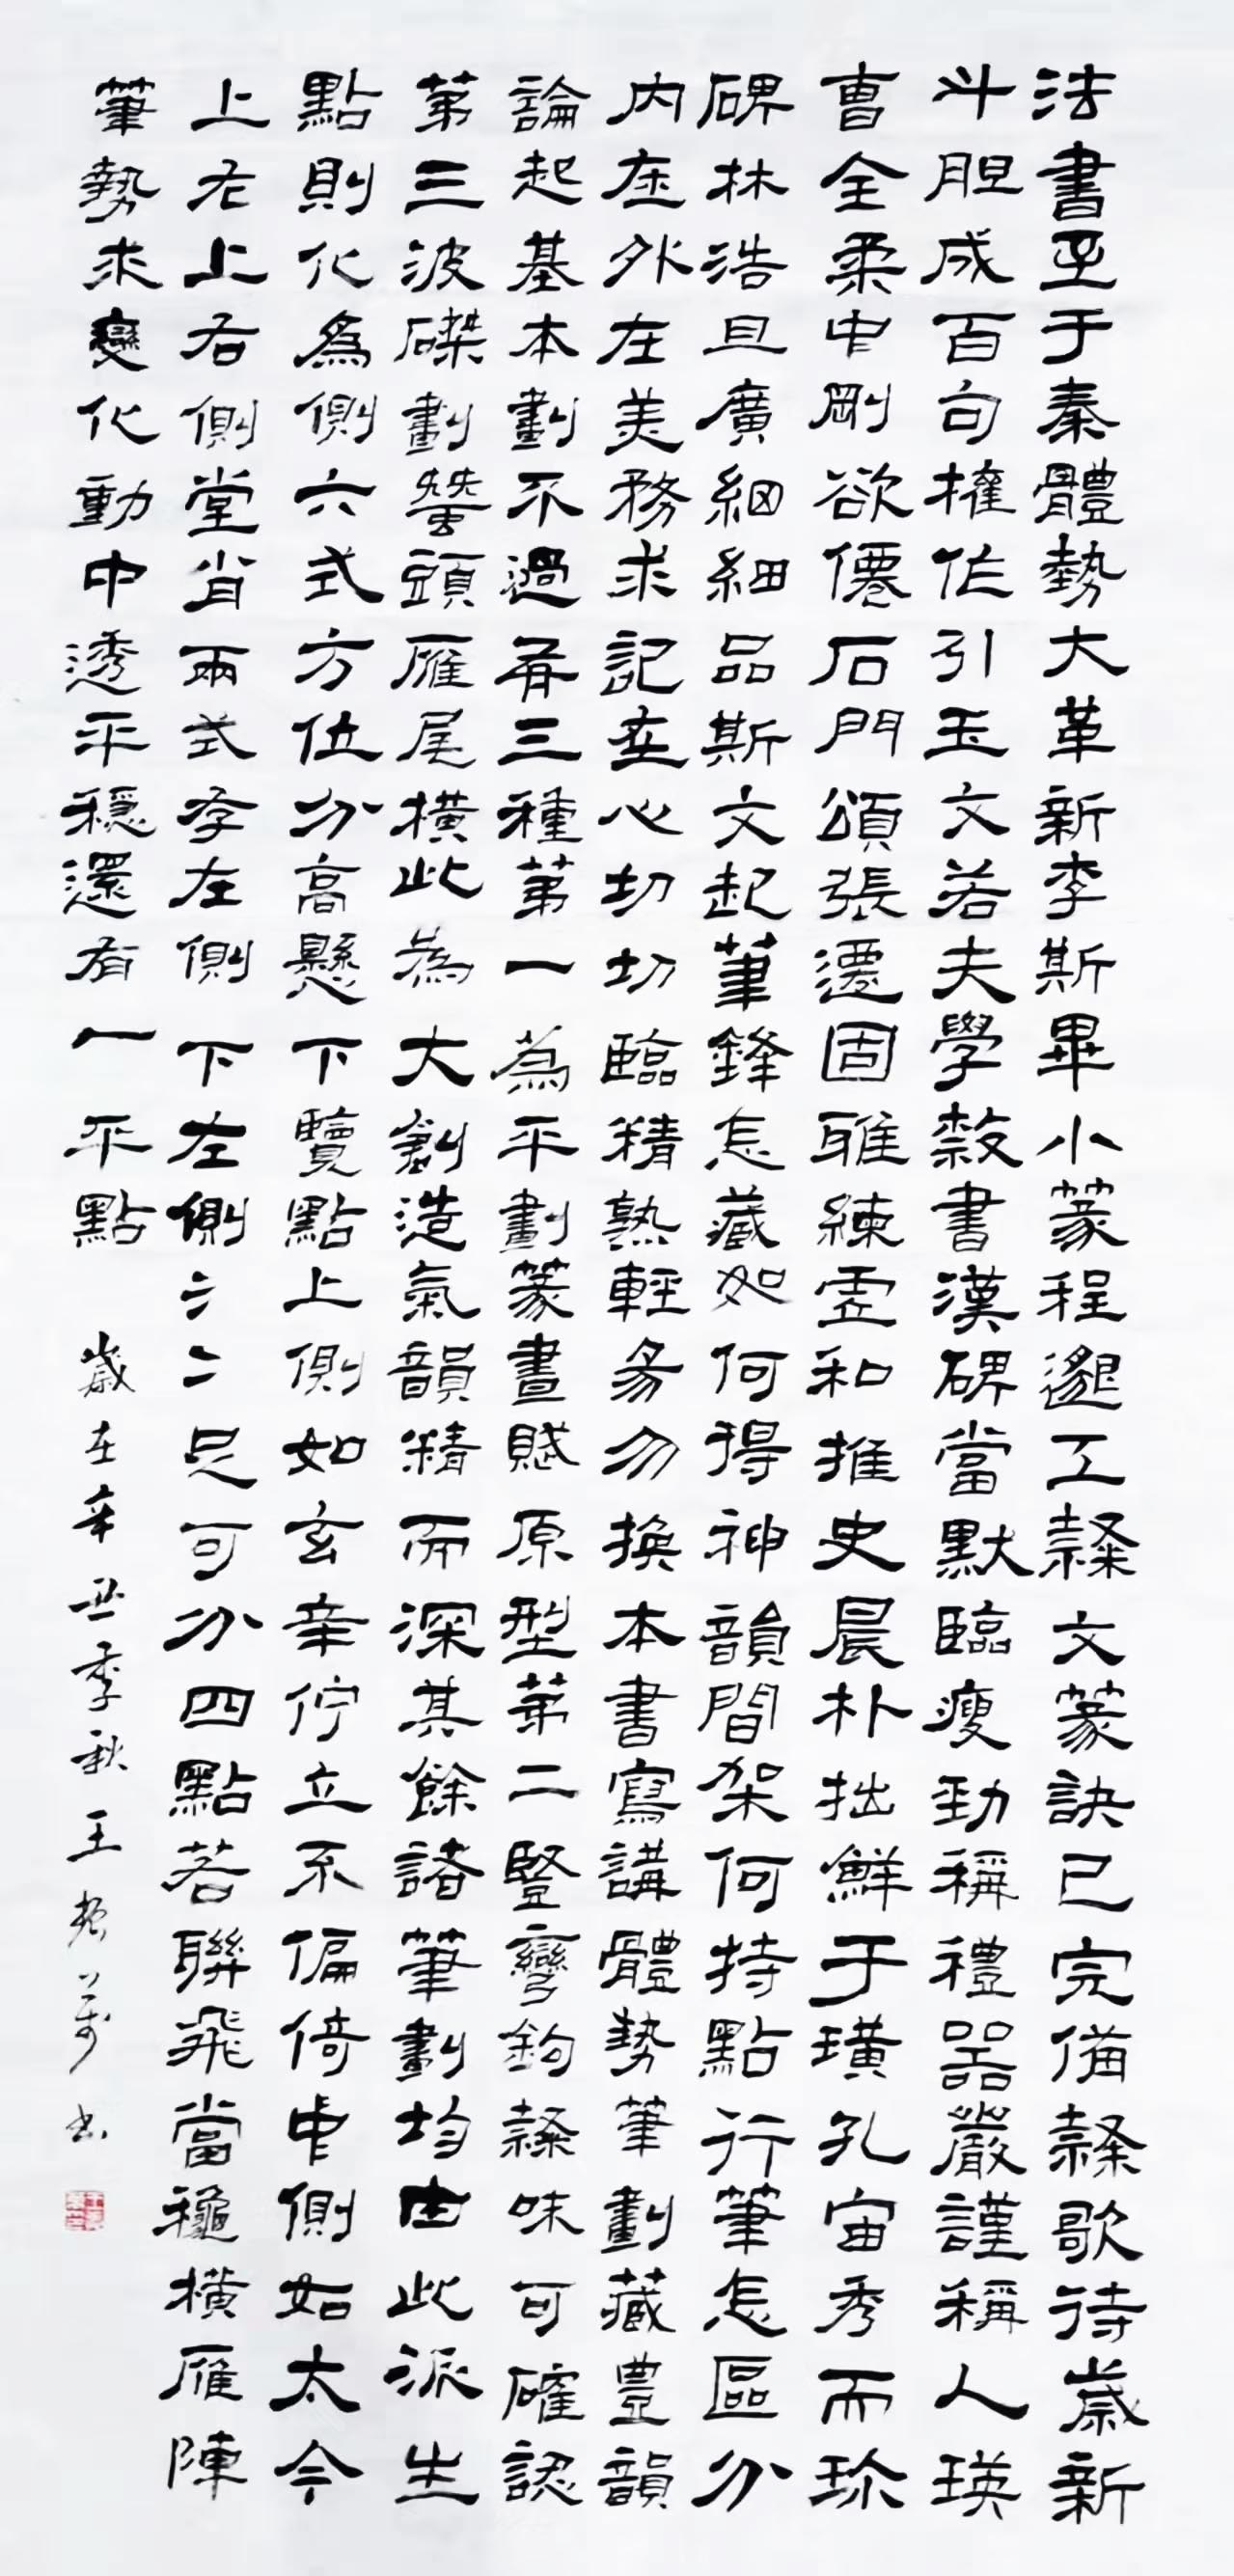 法書至于秦體勢大革新李斯畢小篆程邈工隸文篆訣已完備隸歌待歲新
斗胆成百句權作引玉文若夫學敦書漢碑當默臨瘦勁稱禮器嚴謹稱人瑛
曹全柔中剛欲僊石門頌張遷固雅練虛和推史晨朴拙鮮于璜孔宙秀而珎
碑林浩且廣細細品斯文起筆鋒怎藏如何得神韻間架何持點行筆怎區分
内在外在美務求記在心切切臨精熟輕易勿換本書寫講體勢筆劃藏豊韻
論起基本劃不過有三種第一為平劃篆畫賦原型第二豎彎鉤隸味可確認
第三波磔劃蠶頭雁尾橫此為大創造氣韻精而深其餘諸筆劃均由此派生
點則化為側六式方位分高懸下覽點上側如玄辛佇立系偏倚中側如太今
上左上右側堂肖兩式存左側下左側氵冫足可分四點若聯飛當穐橫雁陣
筆勢求變化動中透平穩還有一平點
歲在辛丑季秋王書